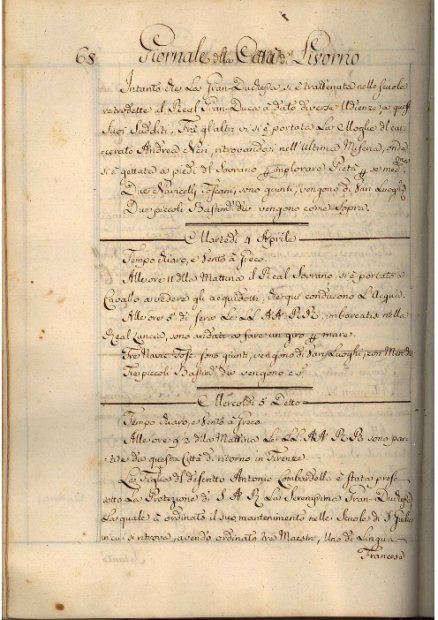 68 Giornale della Città di Livorno
Intanto che La Gran-Duchessa si è trattenuta nelle Scuole
retrodette il Real Gran-Duca à dato diverse Udienze, a questi
Suoi Sudditi; Trà gl'altri vi si è portata La Moglie del car=
cerato Andrea Neri, ritrovandosi nell'ultima Miseria, onde
si è gettata a' piedi del Sovrano p implorare Pietà p se med.ma
Due Navicelli Toscani, sono giunti, vengono di Vari Luoghi
Due piccoli Bastim.ti div. vengono come Sopra.
Martedì 4 Aprile
Tempo chiaro, e Vento à Greco.
Alle ore 11 della Mattina il Real Sovrano, si è portato a
Cavallo a vedere gli acquidotti, che qui conducono L'Acqua.
Alle ore 5 di sera Le LL. AA. RR. imbarcatisi nella
Real Lancia, sono andate a fare un giro p mare.
Tre Navic. Tosc. sono giunti, vengono di Vari Luoghi, con Mer.
Tre piccoli Bastim.ti div. vengono
Mercoldì 5 Detto
Tempo chiaro, e Vento à Greco
Alle ore 9 ½ della Mattina Le LL. AA. RR. sono par=
tite da questa Città di ritorno in Firenze.
La Figlia del difonto Antonio Lombardella è stata presa
sotto La Protezione di S. A. R. La Serenissima Gran-Duchessa
La quale à ordinato il suo mantenimento nelle Scuole di S.
in cui si ritrova, avendo ordinato tre Maestri, Uno di Lingua
Francese